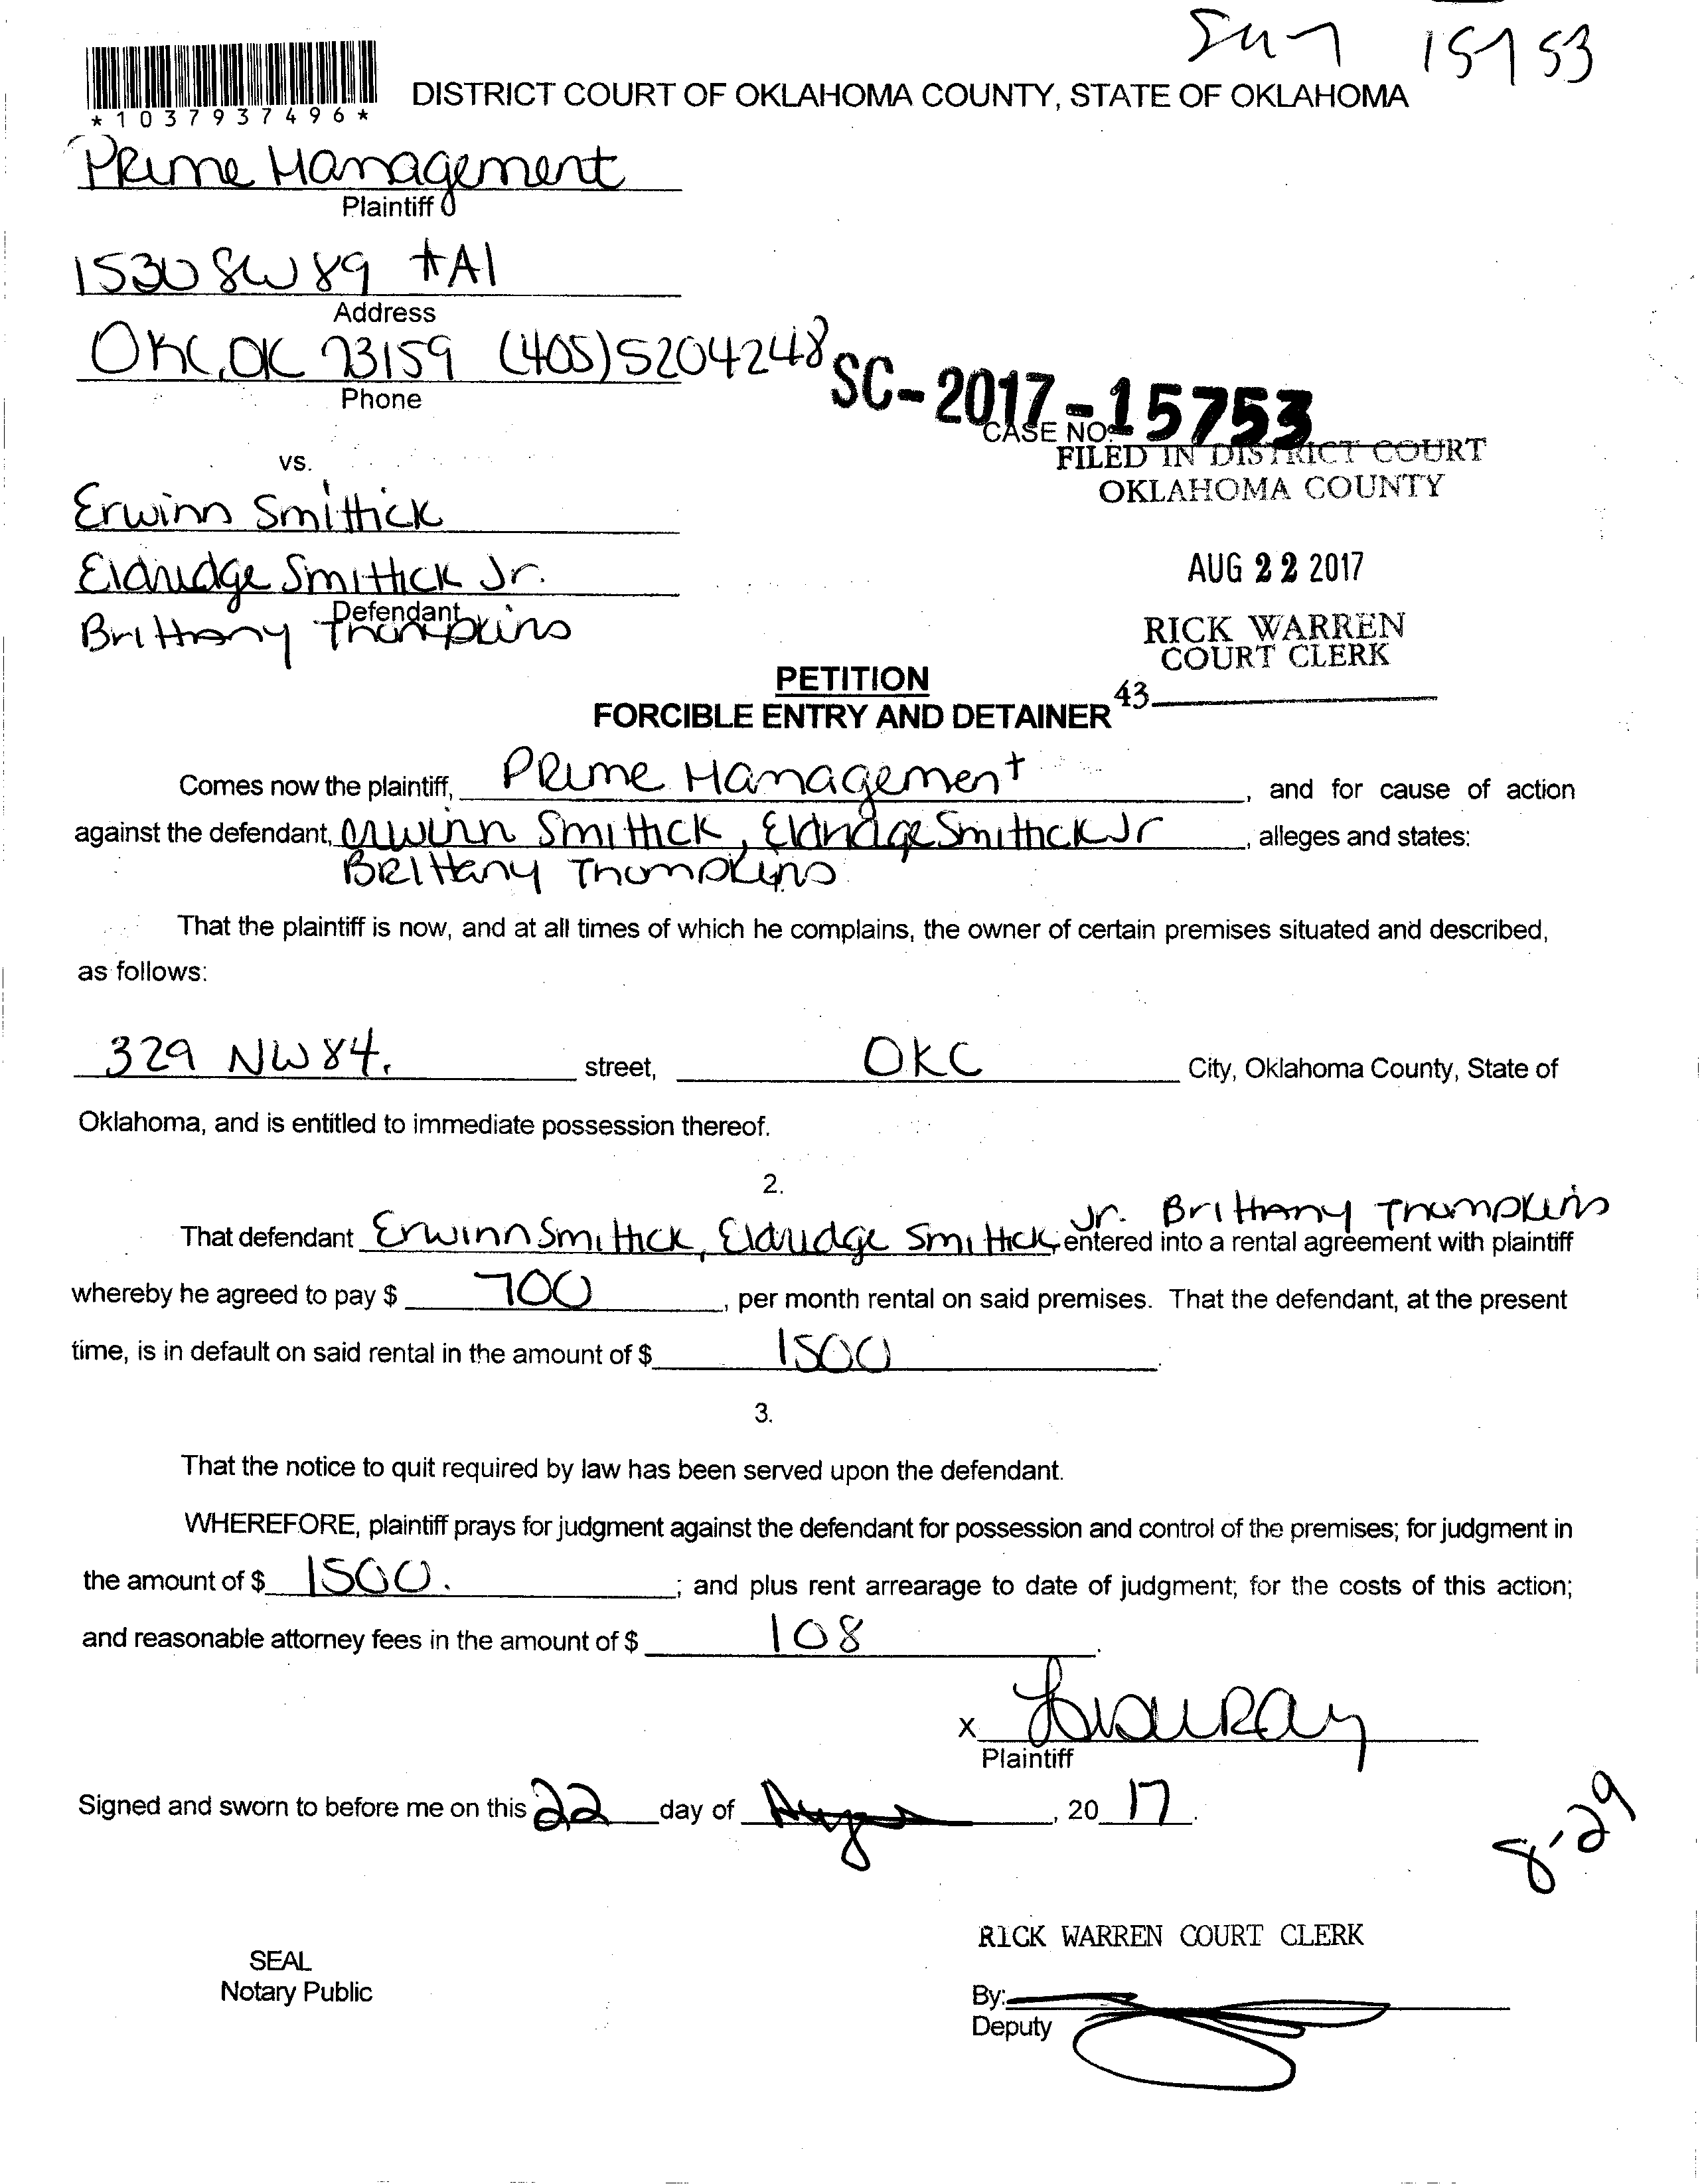 15753
*1037937496*
DISTRICT COURT OF OKLAHOMA COUNTY, STATE OF OKLAHOMA
Prime Management
Plaintiff
1530 SW 89 #A1
Address
OKC, OK 73159 (405) 5204248
Phone
SC-2017-15753
CASE NO.
FILED IN DISTRICT COURT
OKLAHOMA COUNTY
vs.
Erwinn Smittick
Eldridge Smittick Jr.
Defendant
Brittany Thompkins
AUG 22 2017
RICK WARREN
COURT CLERK
43
PETITION
FORCIBLE ENTRY AND DETAINER
Comes now the plaintiff, Prime Management, and for cause of action
against the defendant, Erwinn Smithick, Eldridge Smithick Jr, alleges and states:
Brittany Thompkins
That the plaintiff is now, and at all times of which he complains, the owner of certain premises situated and described,
as follows:
329 NW 84. street, OKC City, Oklahoma County, State of
Oklahoma, and is entitled to immediate possession thereof.
2.
Jr. Brittany Thompkins
That defendant Erwinn Smittick, Eldridge Smittick, entered into a rental agreement with plaintiff
whereby he agreed to pay $ 700, per month rental on said premises. That the defendant, at the present
time, is in default on said rental in the amount of $ 1500.
3.
That the notice to quit required by law has been served upon the defendant.
WHEREFORE, plaintiff prays for judgment against the defendant for possession and control of the premises; for judgment in
the amount of $ 1500. ; and plus rent arrearage to date of judgment; for the costs of this action;
and reasonable attorney fees in the amount of $ 108.
x
Plaintiff
Signed and sworn to before me on this 22 day of Aug, 2017.
8-29
RICK WARREN COURT CLERK
SEAL
Notary Public
By:
Deputy